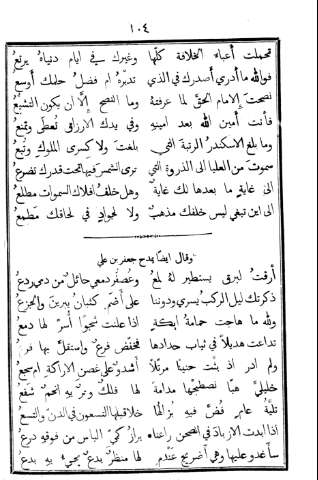 ١٠٤
تحملت أعباء الخلافة كلها وغيرك في ايام دنياه يرتع
فوالله ما أدري أصدرك في الذي تدبره ام فضل حلمك أوسع
نصحت الإمام الحق لما عرفته وما النصح إلا ان يكون التشيع
فأنت أمين الله بعد امينه وفي يدك الارزاق تُعطي وتمنع
وما بلغ الاسكندر الرتبة التي بلغت ولا كسرى الملوك وتبع
سموت من العليا الى الذروة التي ترى الشمس فيها تحت قدرك تضرع
الى غاية ما بعدها لك غاية وهل خلف افلاك السموات مطلع
الى اين تبغي ليس خلفك مذهب ولا لجواد في لحاقك مطمع
وقال ايضا يمدح جعفر بن علي
أرقت لبرق يستطير له لمع وعصفر دمعي جائل من دمي ردع
ذكرتك ليل الركب يسري ودوننا على أضم كثبان يبرين والجزع
ولله ما هاجت حمامة ايكة اذا علنت شجوا أسر لها دمع
تداعت هديلا في ثياب حدادها فخفض فرع واستقل بها فرع
ولم ادر اذ بثت حنينا مرتلا أشدو على غصن الاراكة ام سجع
خليلي هبا نصطبحها مدامة لها فلك وتر به انجم شفع
تلية عام فض فيه بزالها خلا قبلها التسعون في الدن والتسع
اذا ابدت الازباد في الصحن راعنا براز كمي الباس من فوقه درع
سأغدو عليها وهي أضريج عندم لها منظر بدع يجيء به بدع